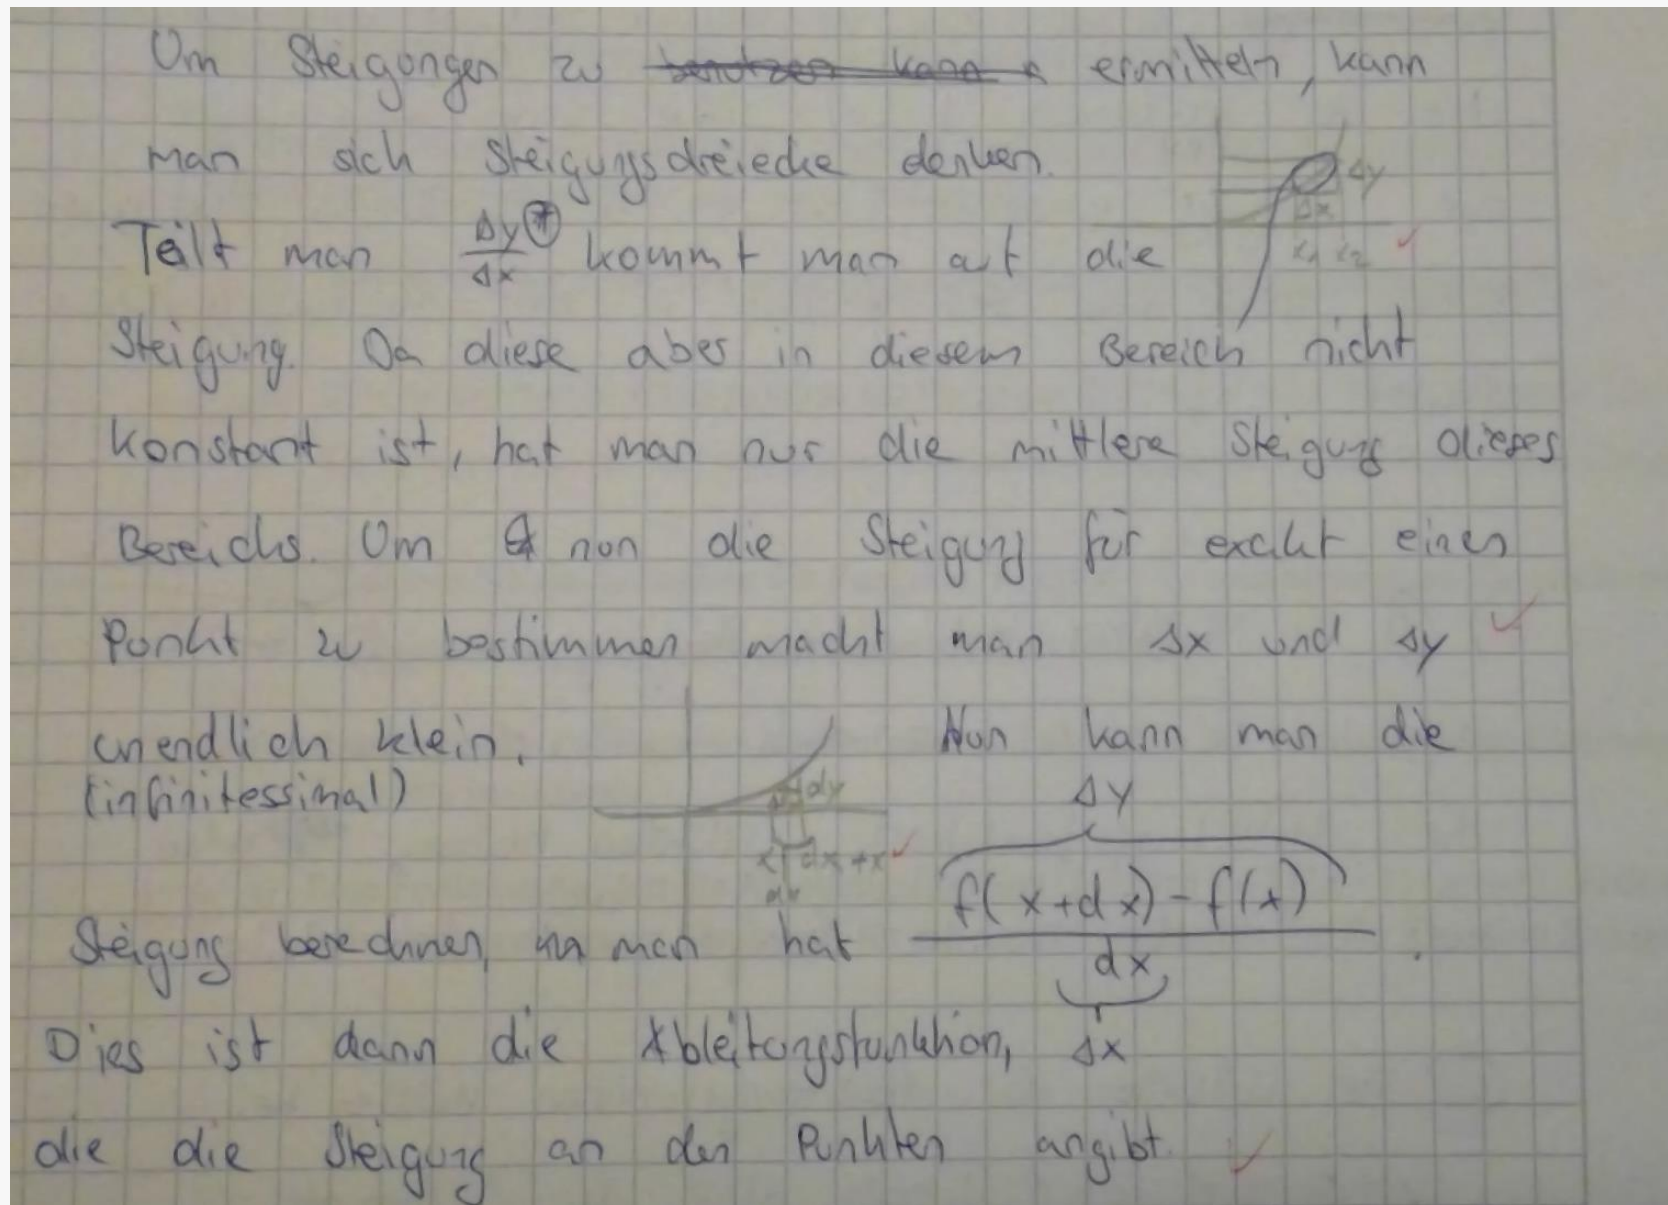 Um Steigungen zu ermitteln, kann
man sich Steigungsdreiecke denken.
Δy
Δx
x1 x2
Teilt man Δy/Δx * kommt man auf die
Steigung. Da diese aber in diesem Bereich nicht
konstant ist, hat man nur die mittlere Steigung dieses
Bereichs. Um nun die Steigung für exakt einen
Punkt zu bestimmen macht man Δx und Δy
unendlich klein. Nun kann man die
(infinitessimal)
dy
x dx+x
dx
Δy
Steigung berechnen, man hat f(x+dx)-f(x)/dx .
Dies ist dann die Ableitungsfunktion, Δx
die die Steigung an den Punkten angibt.